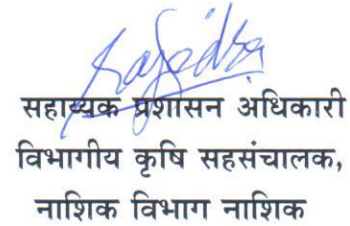 सहाय्यक प्रशासन अधिकारी
विभागीय कृषि सहसंचालक,
नाशिक विभाग नाशिक